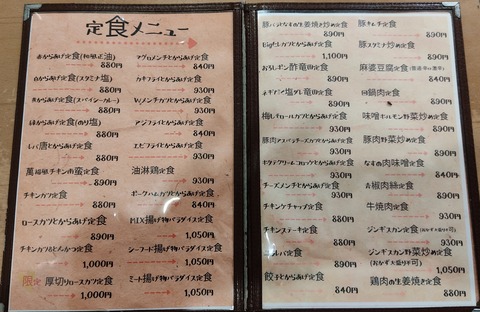 定食メニュー
赤からあげ定食(和風正油)
880円
白からあげ定食(スタミナ塩)
880円
黄からあげ定食(スパイシーカレー)
880円
緑からあげ定食(のり塩)
880円
しば唐とからあげ定食
880円
チキンの蜜定食
890円
チキンカツ定食
880円
ロースカツとからあげ定食
890円
チキンカツ&とんかつ定食
1,000円
限定 厚切りロースカツ定食
1,000円
マグロメンチとからあげ定食
840円
カキフライとからあげ定食
930円
W.メンチカツとからあげ定食
930円
アジフライとからあげ定食
840円
エビフライとからあげ定食
930円
油淋鶏定食
930円
ポークハムカツとからあげ定食
840円
MIX揚げ物パラダイス定食
1,050円
シーフード揚げ物パラダイス定食
1,050円
ミート揚げ物パラダイス定食
1,050円
豚バラなすの生姜焼き炒め定食
890円
ビッグヒレカツとからあげ定食
1,100円
おろしポン酢竜田定食
890円
ネギマシ塩ダレ竜田定食
890円
梅しそロールカツとからあげ定食
930円
豚肉アスパラチーズカツとからあげ定食
930円
ホタテクリームコロッケとからあげ定食
930円
チーズメンチとからあげ定食
930円
チキンケチャップ定食
880円
チキンステーキ定食
880円
レバ定食
890円
餃子とからあげ定食
840円
豚キムチ定食
890円
豚スタミナ炒め定食
890円
麻婆豆腐定食
840円
回鍋肉定食
890円
味噌ホルモン野菜炒め定食
890円
豚肉野菜炒め定食
890円
なすの肉味噌定食
840円
青椒肉絲定食
890円
牛焼肉定食
930円
ジンギスカン定食(おかず大盛り不可)
930円
ジンギスカン野菜炒め定食
(おかず大盛り不可)
1,050円
鶏肉の生姜焼き定食
880円